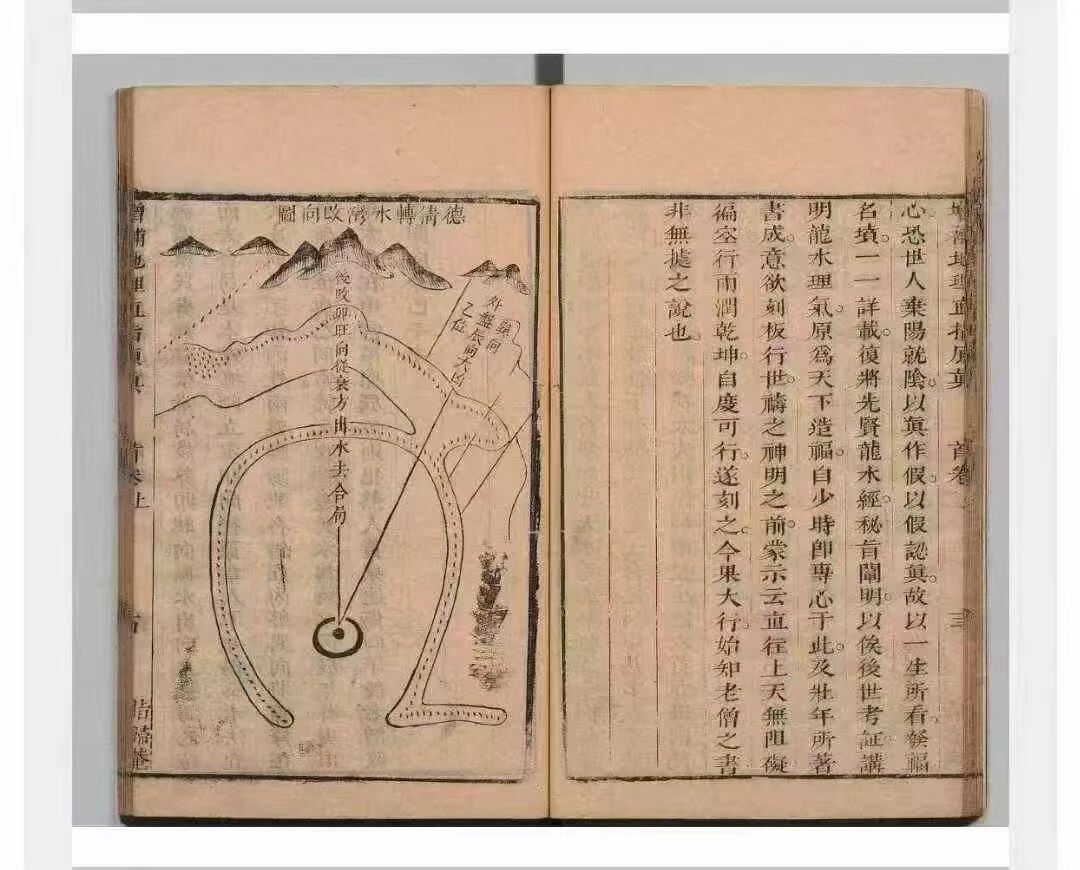 增補地理直指原眞
首卷上
三
心恐世人棄陽就陰。以眞作假。以假認眞。故以一生所看發福
名墳。一一詳載。復將先賢龍水經。秘旨闡明。以俟後世考証。講
明龍水理氣。原爲天下造福。自少時卽專心于此。及壯年所著
書成。意欲刻板行世。禱之神明之前。蒙示云直往上天無阻礙
徧空行雨潤乾坤。自度可行。遂刻之。今果大行。始知老僧之書
非無據之說也。
德清轉水灣改向圖
舊向
外盤辰向大凶
乙位
後改卯旺向從衰方出水去合局
增補地理直指原眞
首卷上